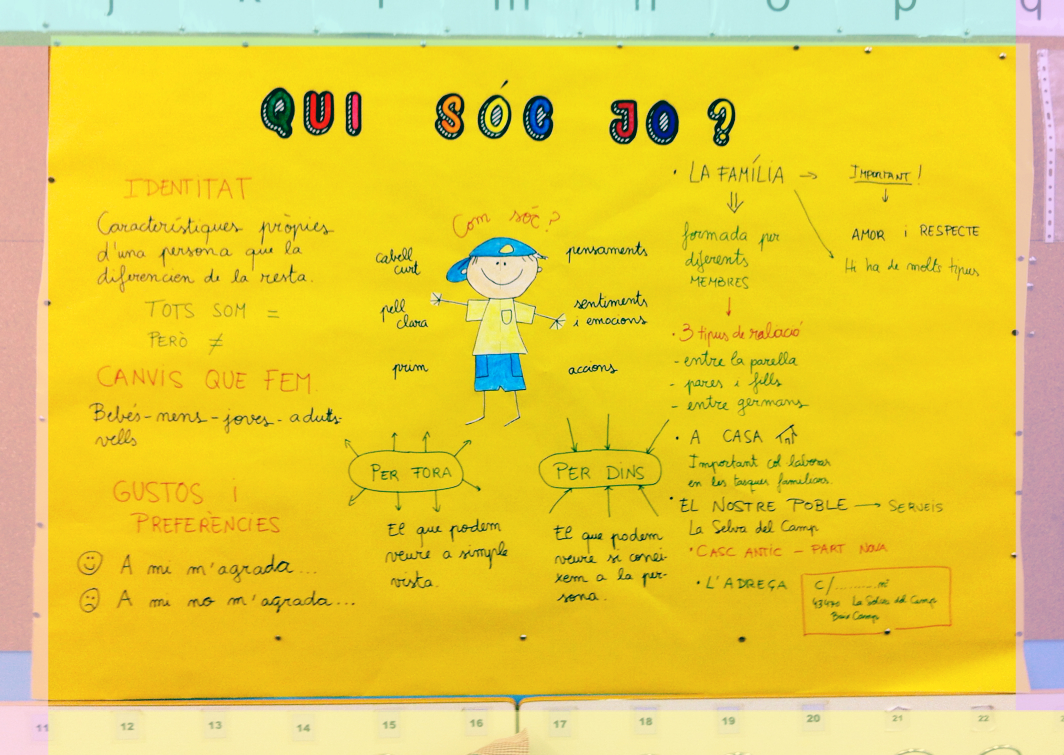 j k l m n o p q
QUI SÓC JO?
IDENTITAT
Característiques pròpies
d'una persona que la
diferencien de la resta.
TOTS SOM =
PERÒ ≠
CANVIS QUE FEM.
Bebés-nens-joves-aduts-
vells
GUSTOS i
PREFERÈNCIES
A mi m'agrada...
A mi no m'agrada...
Com sóc?
cabell
curt
pell
clara
prim
pensaments
sentiments
i emocions
accions
PER FORA
El que podem
veure a simple
vista.
PER DINS
El que podem
veure si conei-
xem a la per-
sona.
· LA FAMÍLIA → IMPORTANT!
AMOR i RESPECTE
Hi ha de molts tipus
formada per
diferents
MEMBRES
· 3 tipus de relació
- entre la parella
- pares i fills
- entre germans
· A CASA
Important col·laborar
en les tasques familiars.
· EL NOSTRE POBLE → SERVEIS
La Selva del Camp
· CASC ANTIC - PART NOVA
· L'ADREÇA
C/.......... nº
43470 La Selva del Camp
Baix Camp
11 12 13 14 15 16 17 18 19 20 21 22